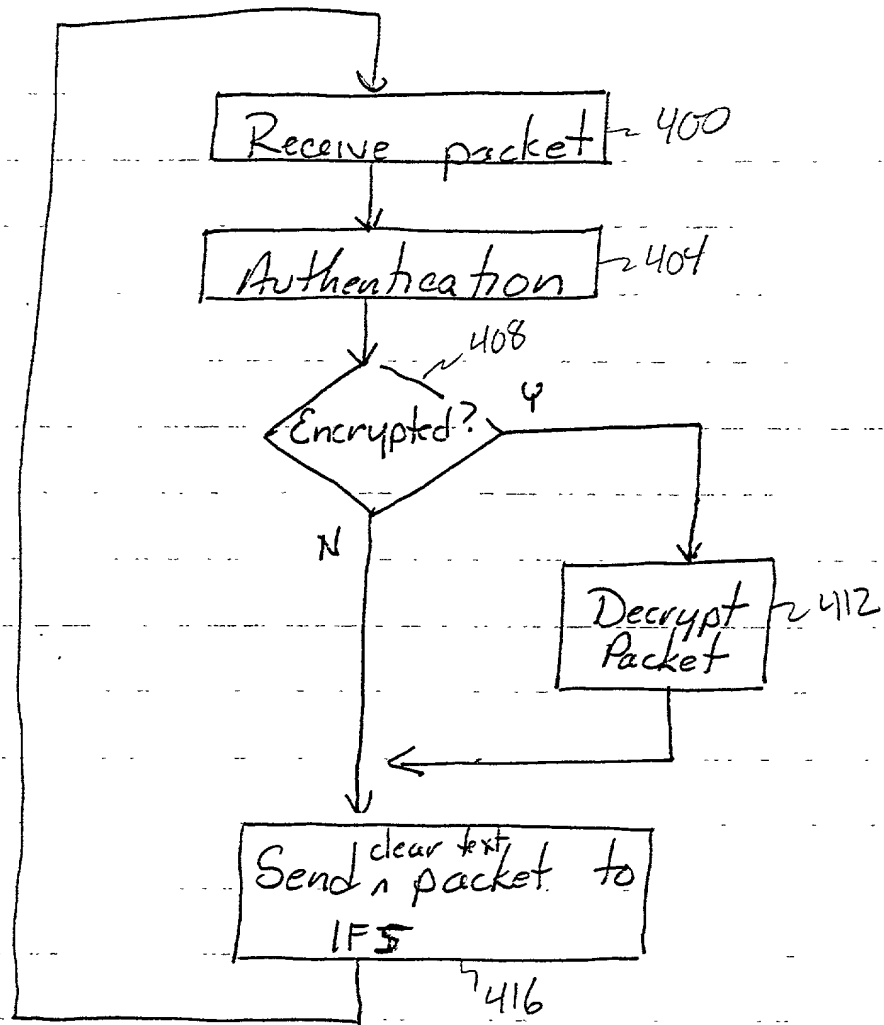 Receive packet 400
Authentication 404
408
Encrypted? Y
N
Decrypt 412
Packet
clear text
Send ^ packet to
IFS
416